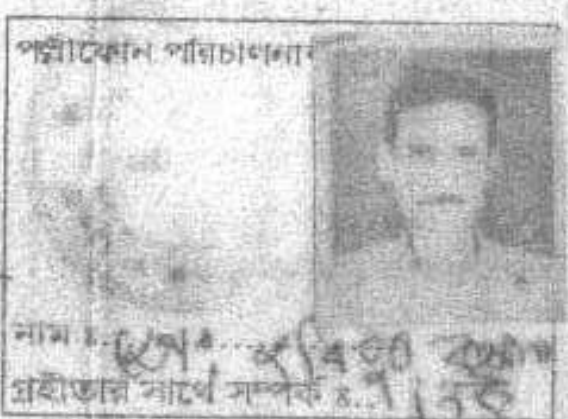 পল্লীফোন পরিচালনার
নাম ঃ মোঃ
গ্রহীতার সাথে সম্পর্ক ঃ নিজ